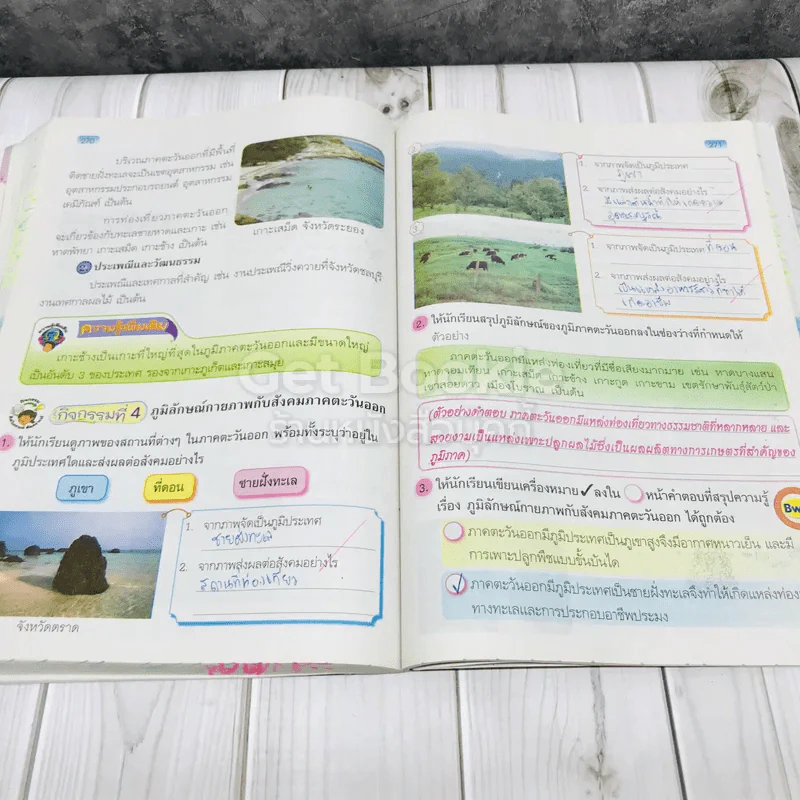 270
บริเวณภาคตะวันออกที่มีพื้นที่
ติดชายฝั่งทะเลจะเป็นเขตอุตสาหกรรม เช่น
อุตสาหกรรมประกอบรถยนต์ อุตสาหกรรม
เคมีภัณฑ์ เป็นต้น
การท่องเที่ยวภาคตะวันออก
จะเกี่ยวข้องกับทะเลชายหาดและเกาะ เช่น
หาดพัทยา เกาะเสม็ด เกาะช้าง เป็นต้น
เกาะเสม็ด จังหวัดระยอง
ประเพณีและวัฒนธรรม
ประเพณีและเทศกาลที่สำคัญ เช่น งานประเพณีวิ่งควายที่จังหวัดชลบุรี
งานเทศกาลผลไม้ เป็นต้น
ความรู้เพิ่มเติม
เกาะช้างเป็นเกาะที่ใหญ่ที่สุดในภูมิภาคตะวันออกและมีขนาดใหญ่
เป็นอันดับ 3 ของประเทศ รองจากเกาะภูเก็ตและเกาะสมุย
กิจกรรมที่ 4 ภูมิลักษณ์กายภาพกับสังคมภาคตะวันออก
1. ให้นักเรียนดูภาพของสถานที่ต่างๆ ในภาคตะวันออก พร้อมทั้งระบุว่าอยู่ใน
ภูมิประเทศใดและส่งผลต่อสังคมอย่างไร
ภูเขา ที่ดอน ชายฝั่งทะเล
1. จากภาพจัดเป็นภูมิประเทศ
ชายฝั่งทะเล
2. จากภาพส่งผลต่อสังคมอย่างไร
สถานที่ท่องเที่ยว
จังหวัดตราด
271
2.
1. จากภาพจัดเป็นภูมิประเทศ
ภูเขา
2. จากภาพส่งผลต่อสังคมอย่างไร
3.
1. จากภาพจัดเป็นภูมิประเทศ ที่ดอน
2. จากภาพส่งผลต่อสังคมอย่างไร
2. ให้นักเรียนสรุปภูมิลักษณ์ของภูมิภาคตะวันออกลงในช่องว่างที่กำหนดให้
ตัวอย่าง
ภาคตะวันออกมีแหล่งท่องเที่ยวที่มีชื่อเสียงมากมาย เช่น หาดบางแสน
หาดจอมเทียน เกาะเสม็ด เกาะช้าง เกาะกูด เกาะขาม เขตรักษาพันธุ์สัตว์ป่า
เขาสอยดาว เมืองโบราณ เป็นต้น
(ตัวอย่างคำตอบ ภาคตะวันออกมีแหล่งท่องเที่ยวทางธรรมชาติที่หลากหลาย และ
สวยงามเป็นแหล่งเพาะปลูกผลไม้ซึ่งเป็นผลผลิตทางการเกษตรที่สำคัญของ
ภูมิภาค)
3. ให้นักเรียนเขียนเครื่องหมาย ✓ ลงใน ◯ หน้าคำตอบที่สรุปความรู้
เรื่อง ภูมิลักษณ์กายภาพกับสังคมภาคตะวันออก ได้ถูกต้อง
Bw
ภาคตะวันออกมีภูมิประเทศเป็นภูเขาสูงจึงมีอากาศหนาวเย็น และมี
การเพาะปลูกพืชแบบขั้นบันได
✓ ภาคตะวันออกมีภูมิประเทศเป็นชายฝั่งทะเลจึงทำให้เกิดแหล่งท่อง
ทางทะเลและการประกอบอาชีพประมง